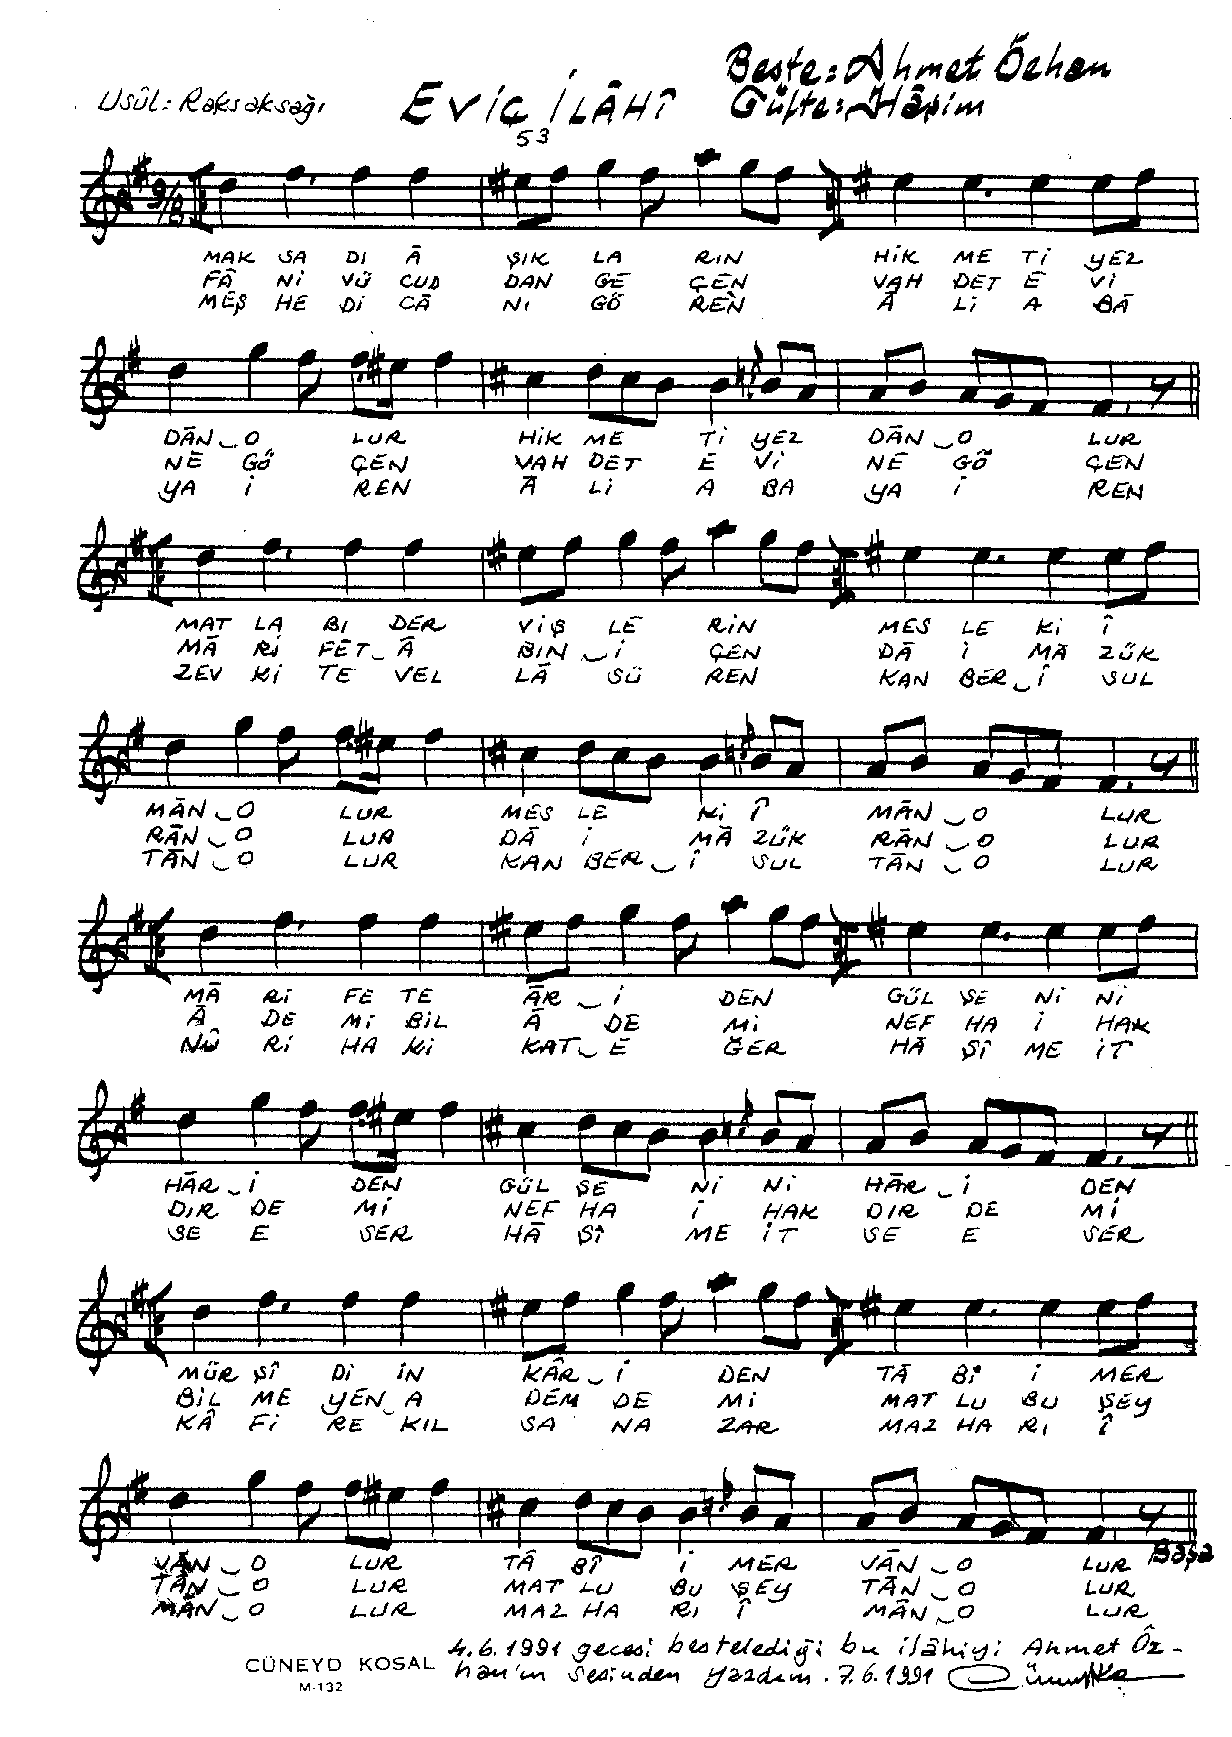 Beste: Ahmet Özhan
Usûl: Raksaksağı EVİÇ İLÂHÎ Güfte: Hâşim
53
9/8
MAK SA DI Ā ŞIK LA RIN HİK ME Tİ YEZ
FÂ Nİ VÜ CUD DAN GE ÇEN VAH DET E Vİ
MEŞ HE Dİ CĀ NI GÖ REN Ā Lİ A BĀ
DĀN‿O LUR HİK ME Tİ YEZ DĀN‿O LUR
NE GÖ ÇEN VAH DET E Vİ NE GÖ ÇEN
YA İ REN Ā Lİ A BA YA İ REN
MAT LA BI DER VİŞ LE RİN MES LE Kİ Î
MĀ Rİ FET‿Ā BIN‿İ ÇEN DĀ İ MĀ ZÜK
ZEV Kİ TE VEL LĀ SÜ REN KAN BER‿Î SUL
MĀN‿O LUR MES LE Kİ Î MĀN‿O LUR
RĀN‿O LUR DĀ İ MĀ ZÜK RĀN‿O LUR
TĀN‿O LUR KAN BER‿Î SUL TĀN‿O LUR
MĀ Rİ FE TE ĀR‿İ DEN GÜL ŞE Nİ Nİ
Ā DE Mİ BİL Ā DE Mİ NEF HA İ HAK
NÛ Rİ HA Kİ KAT‿E ĞER HĀ ŞÎ ME İT
HĀR‿İ DEN GÜL ŞE Nİ Nİ HĀR‿İ DEN
DIR DE Mİ NEF HA Î HAK DIR DE Mİ
SE E SER HĀ ŞÎ ME İT SE E SER
MÜR ŞÎ Dİ İN KÂR‿İ DEN TĀ Bİ İ MER
BİL ME YEN‿A DEM DE Mİ MAT LU BU ŞEY
KÂ Fİ RE KIL SA NA ZAR MAZ HA RI Î
VĀN‿O LUR TÂ BÎ İ MER VĀN‿O LUR
TĀN‿O LUR MAT LU BU ŞEY TĀN‿O LUR
MĀN‿O LUR MAZ HA RI Î MĀN‿O LUR
Başa
4.6.1991 gecesi bestelediği bu ilâhiyi Ahmet Öz-
CÜNEYD KOSAL han'ın sesinden yazdım. 7.6.1991
M-132